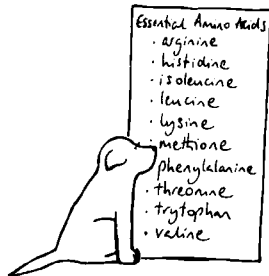 Essential Amino Acids
· arginine
· histidine
· isoleucine
· leucine
· lysine
· methione
phenylalanine
· threonine
· trytophan
· valine